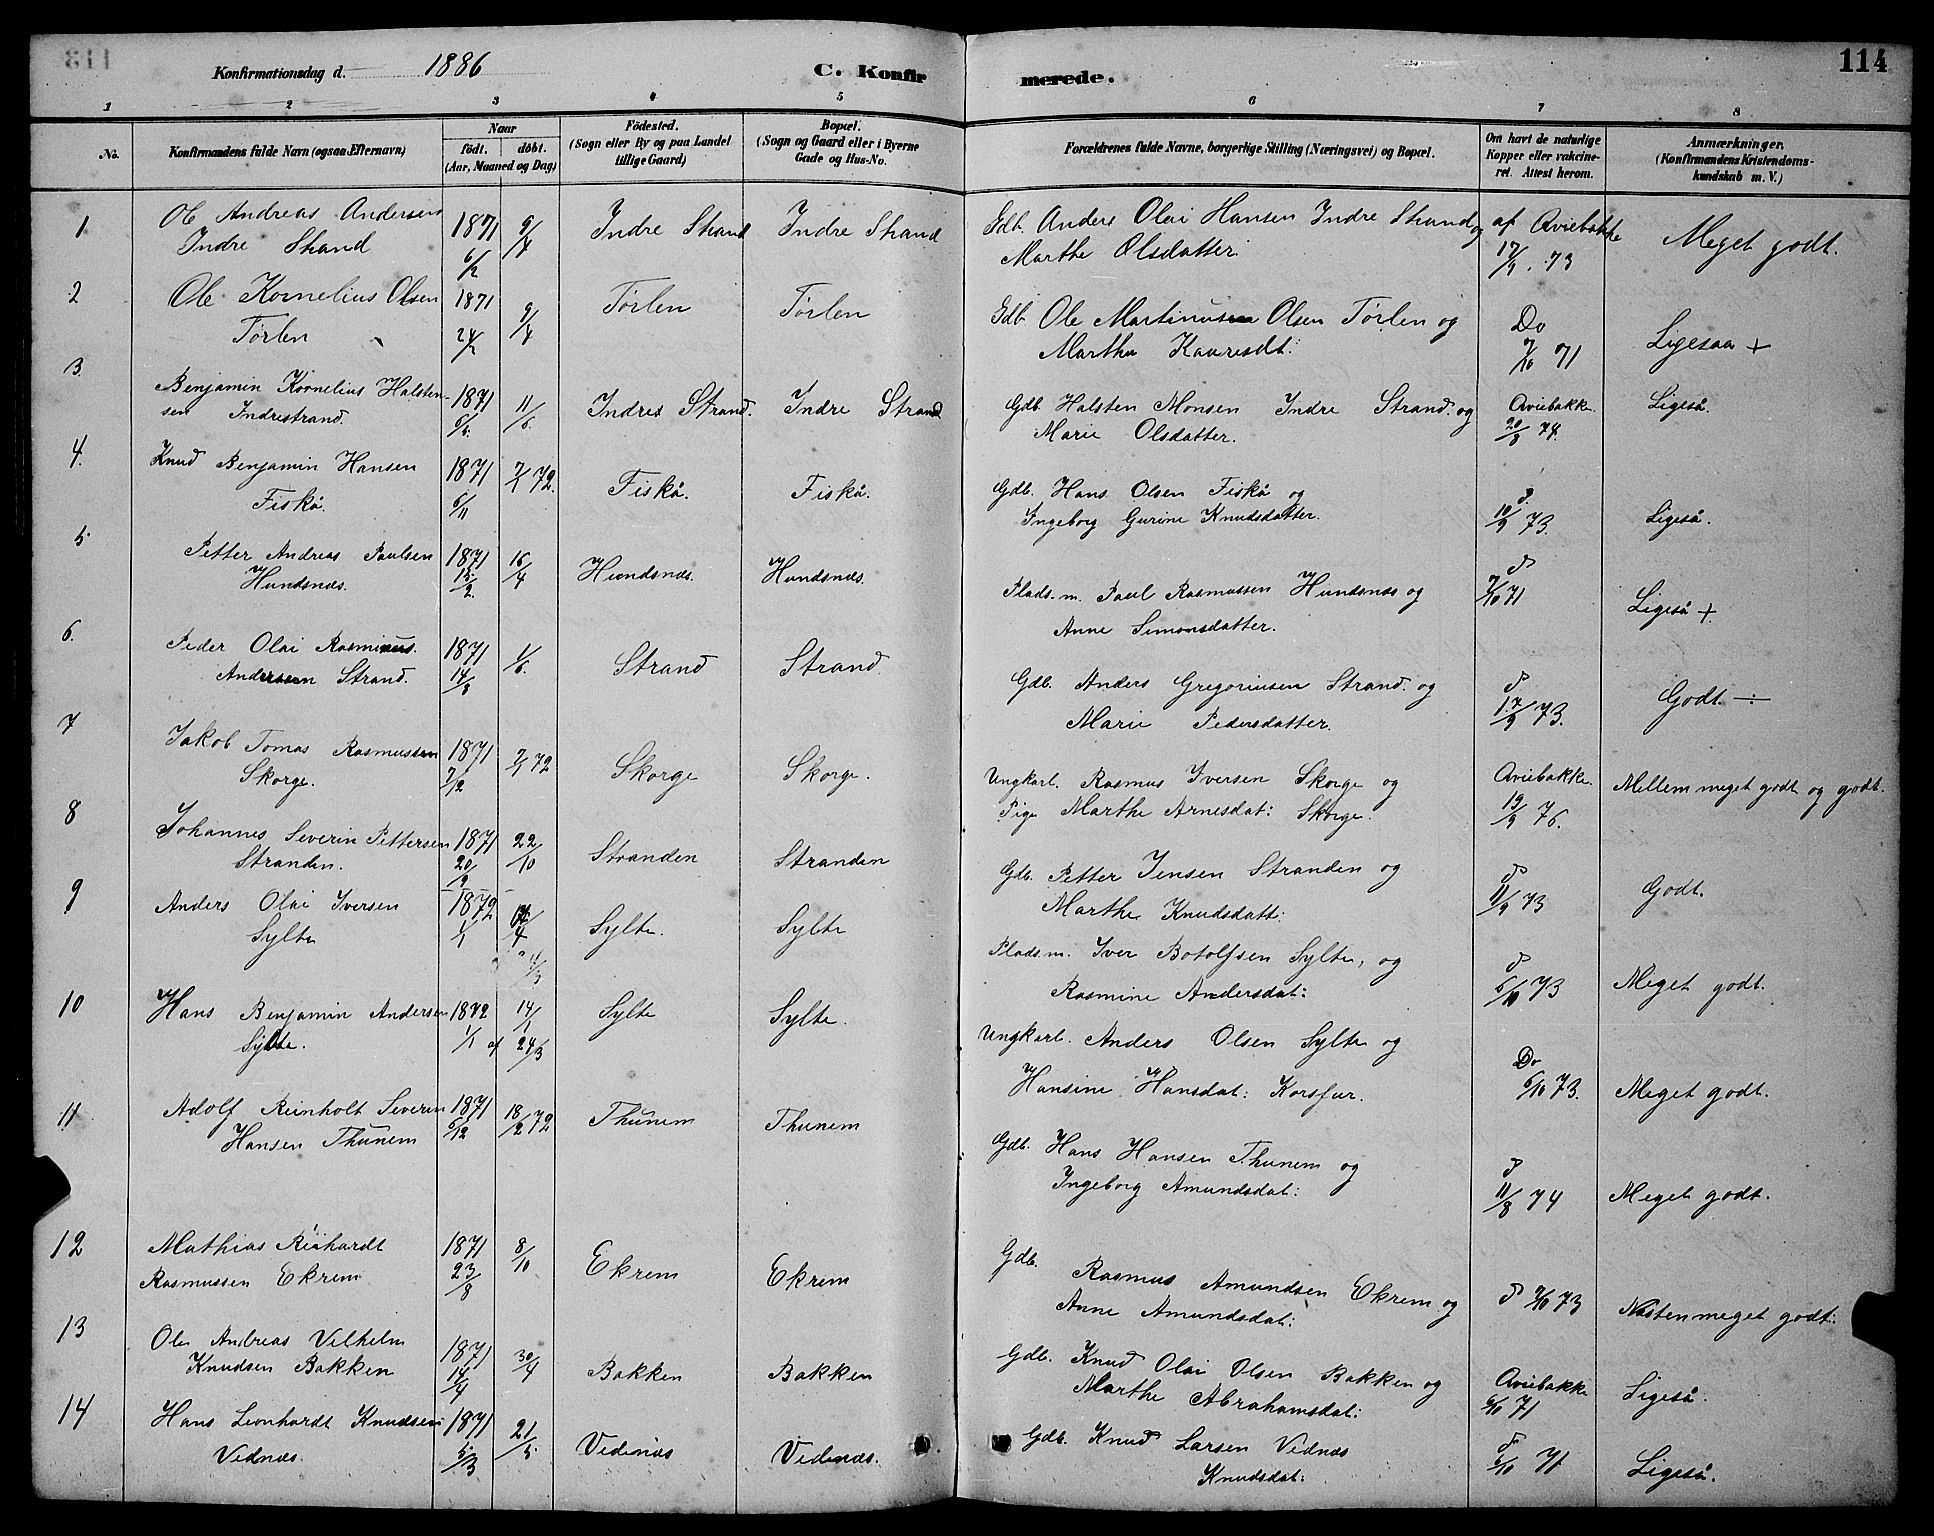 113
Konfirmationsdag d. 1886
C. Konfirmerede.
114
1 2 3 4 5 6 7 8
No.
Konfirmandens fulde Navn (ogsaa Efternavn)
Naar
födt. döbt.
(Aar, Maaned og Dag)
Födested.
(Sogn eller By og paa Landet
tillige Gaard)
Bopæl.
(Sogn og Gaard eller i Byerne
Gade og Hus-No.
Forældrenes fulde Navne, borgerlige Stilling (Næringsvei) og Bopæl.
Om havt de naturlige
Kopper eller vakcine-
ret. Attest herom.
Anmærkninger.
(Konfirmandens Kristendoms-
kundskab m. V.)
1 Ole Andreas Andersen 1871 9/4 Indre Strand Indre Strand Gdb. Anders Olai Hansen Indre Strand og af Aviebakke Meget godt.
Indre Strand 6/2 Marthe Olsdatter. 17/9 . 73
2 Ole Kornelius Olsen 1871 9/4 Tørlen Tørlen Gdb. Ole Martinus Olsen Tørlen og Do Ligesaa +
Tørlen 24/2 Martha Kauresdt: 7/10 71
3. Benjamin Kornelius Halsten- 1871 11/6 Indres Strand. Indre Strand Gdb. Halsten Monsen Indre Strand. og Aviebakke. Ligeså.
sen Indrestrand. 6/5. Marie Olsdatter. 20/8 74.
4. Knud Benjamin Hansen 1871 7/1 72. Fiskå. Fiskå. Gdb. Hans Olsen Fiskå og do Ligeså.
Fiskå. 6/11 Ingeborg Gurine Knudsdatter. 10/9 73.
5. Petter Andreas Paulsen 1871 16/4 Hundsnæs. Hundsnæs. Plads.m. Paul Rasmussen Hundsnæs og do Ligeså +
Hundsnæs. 15/2. Anne Simonsdatter. 7/10 71
6. Peder Olai Rasminus. 1871 1/5. Strand Strand. Gdb. Anders Gregoriusen Strand. og do Godt. ÷
Andersen Strand. 14/3 Marie Pedersdatter. 17/9 73.
7 Jakob Tomas Rasmussen 1871 7/1 72 Skorge Skorge. Ungkarl. Rasmus Iversen Skorge og Aviebakke Mellem meget godt og godt.
Skorge. 7/12 Pige Marthe Arnesdat: Skorge. 19/9 76.
8 Johannes Severin Pettersen 1871 22/10 Stranden Stranden Gdb. Petter Jensen Stranden og do Godt.
Stranden. 20/9 Marthe Knudsdatt: 11/9 73
9 Anders Olai Iversen 1872 14/4 Sylte. Sylte Plads.m. Iver Botolfsen Sylte, og do Meget godt.
Sylte 1/1 Rasmine Andersdat: 6/10 73
10 Hans Benjamin Andersen 1872 14/1 Sylte Sylte. Ungkarl. Anders Olsen Sylte og Do Meget godt.
Sylte. 1/1 af 24/3 Hansine Hansdat: Korsfur. 6/10 73.
11 Adolf Reinholt Severin 1871 18/2 72 Thunem Thunem Gdb. Hans Hansen Thunem og do Meget godt.
Hansen Thunem 6/12 Ingeborg Amundsdat: 11/8 74
12 Mathias Reinhardt 1871 8/10 Ekrem Ekrem Gdb. Rasmus Amundsen Ekrem og do 7/10 73 Næsten meget godt.
Rasmussen Ekrem 23/8 Anne Amundsdat:
13 Ole Andreas Vilhelm 1871 30/4 Bakken Bakken Gdb. Knud Olai Olsen Bakken og Aviebakke Ligeså.
Knudsen Bakken 14/4 Marthe Abrahamsdat: 6/10 71
14 Hans Leonhardt Knudsen 1871 21/5 Vidnæs Vidnæs. Gdb. Knud Larsen Vidnæs do Ligeså.
Vidnæs. 5/3 Knudsdat: 6/10 71